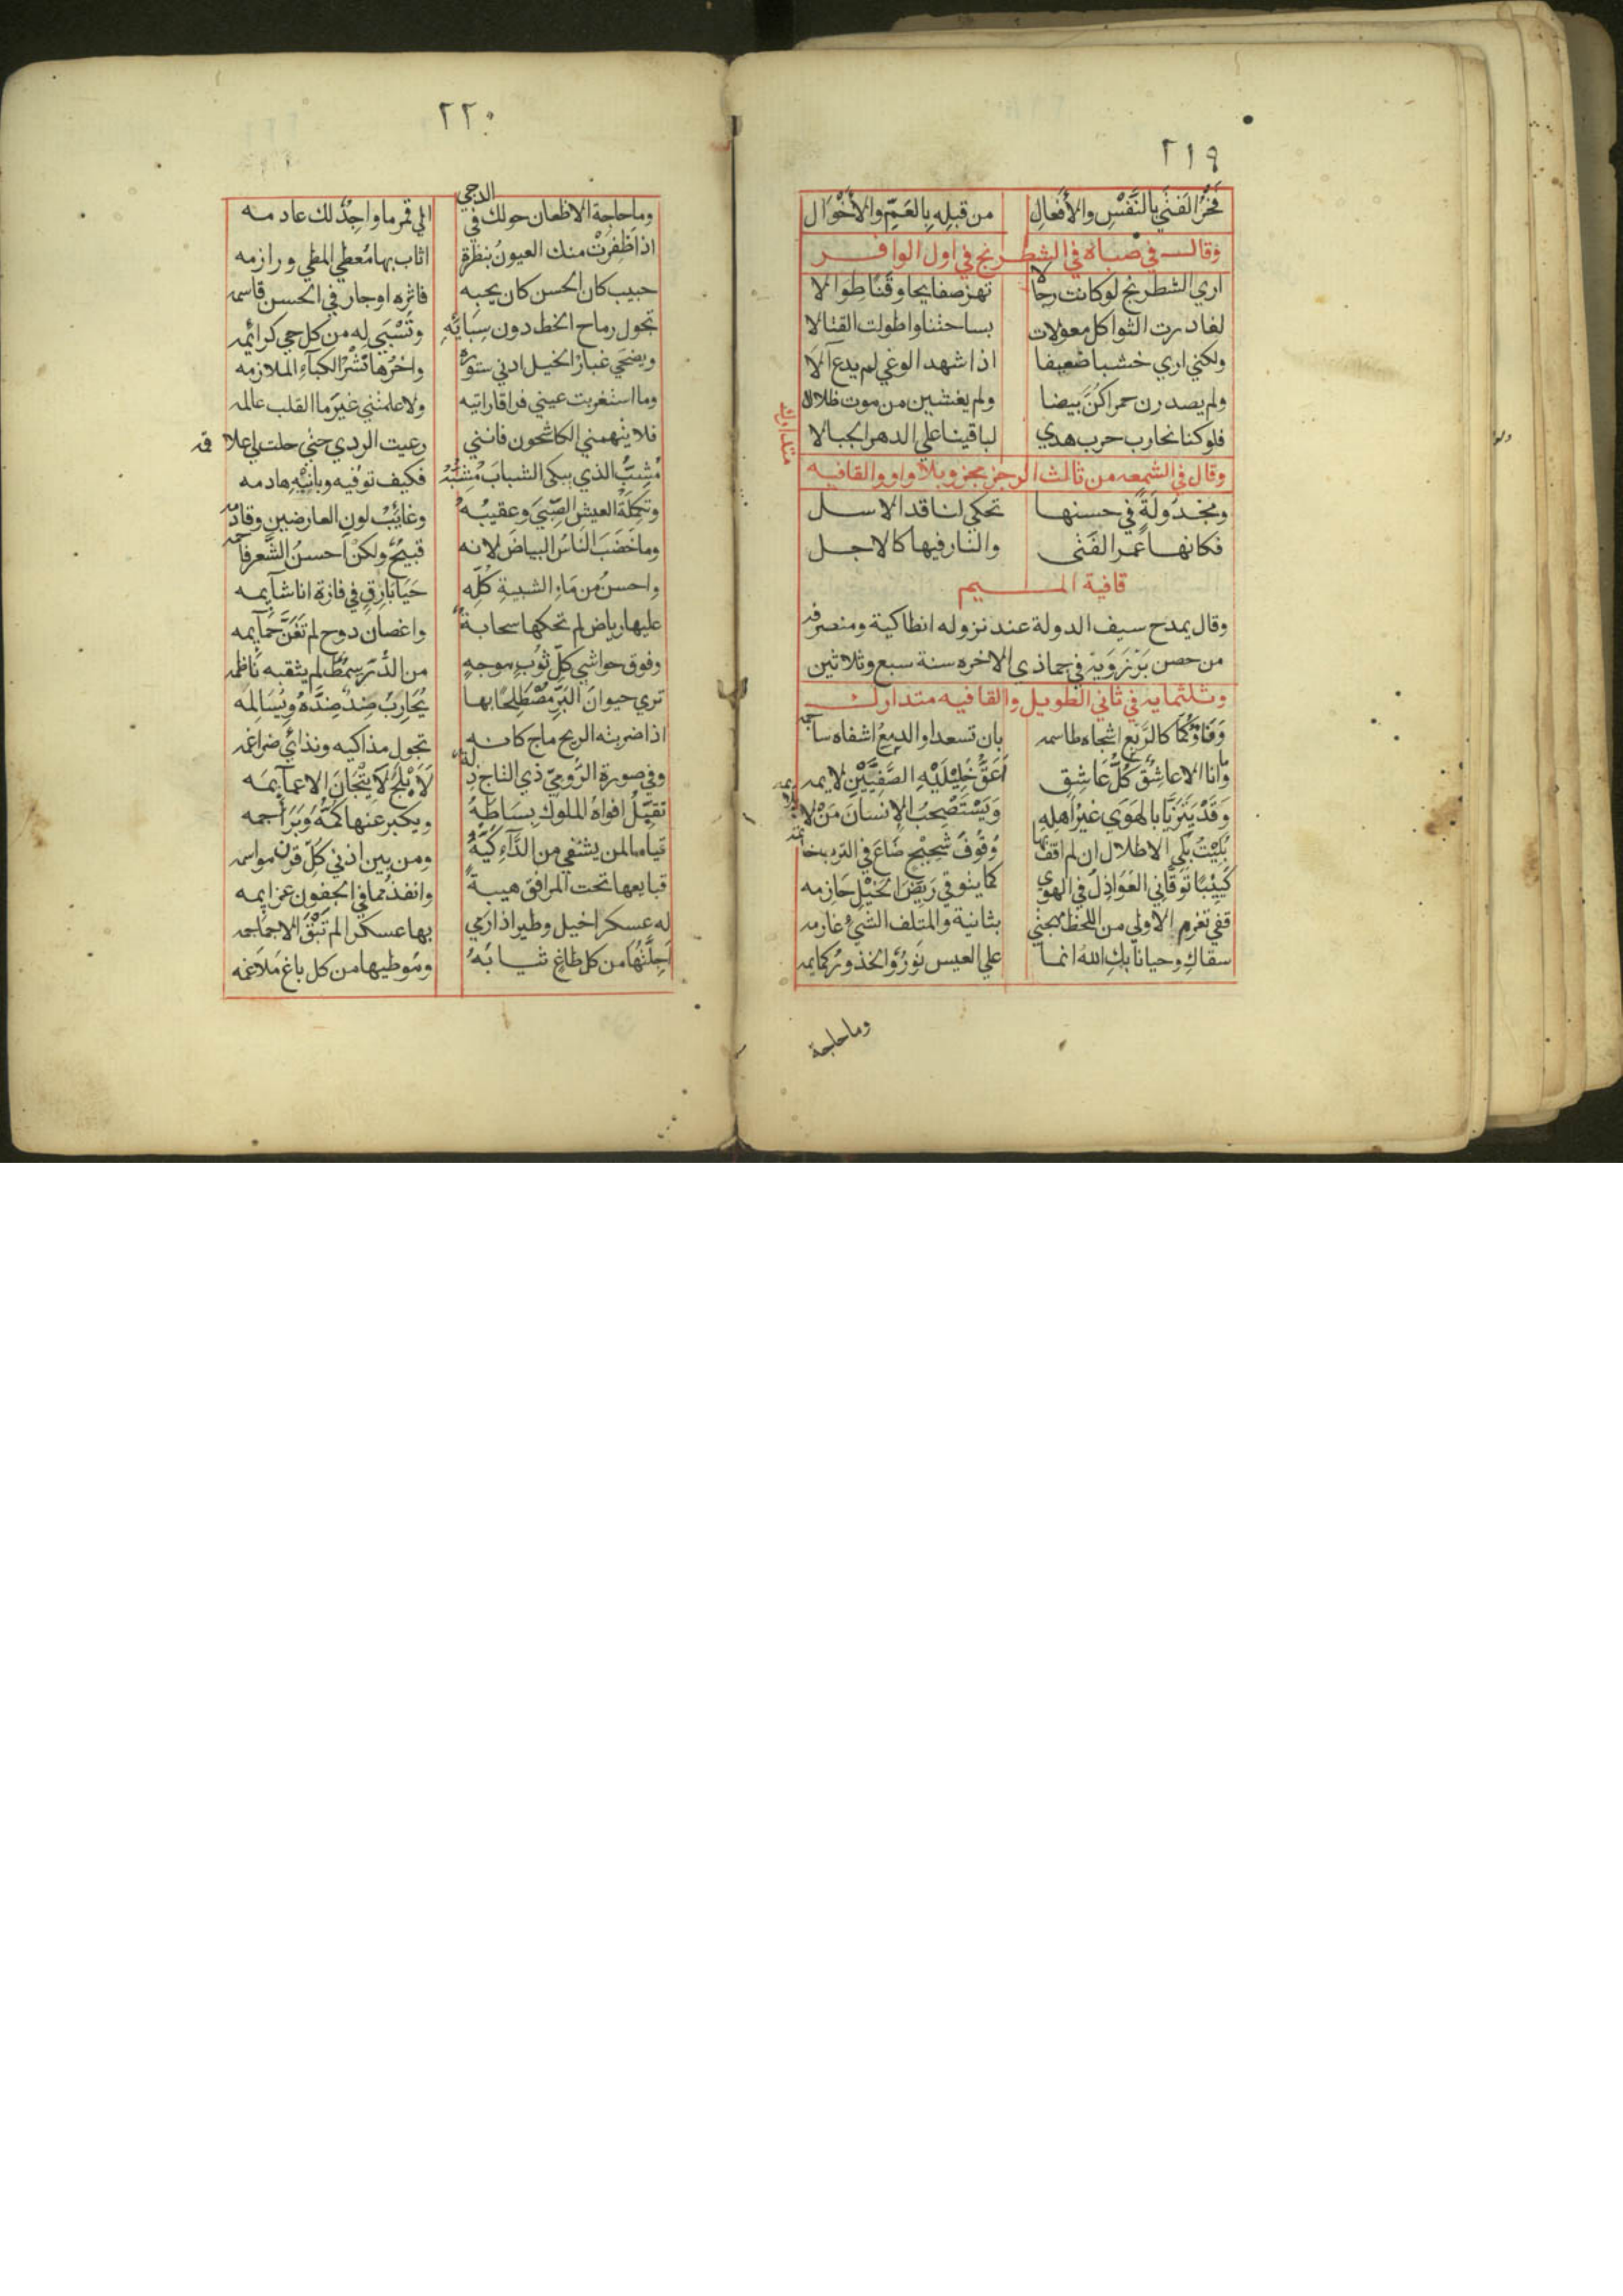 ٢١٩
فَخْرُ الفَتَى بالنَّفْسِ والأَفعَالِ من قبلِه بِالعَمِّ والأَخْوَال
وقال في صباه في الشطرنج في اول الوافر
اري الشطرنج لو كانت رجالا تهز صفايحا وقَنًا طِوَالا
لغادرت الثواكل معولات بساحتنا واطولت القتالا
ولكني اري خشبا ضعيفا اذا شهد الوغي لم يدع آلا
ولم يصدرن حمرا كُنَّ بيضا ولم يغشين من موت ظلالا
فلو كنا نحارب حرب هدي لباقينا علي الدهر الجبالا
متدارك
وقال في الشمعه من ثالث الرجز مجزو بلا واو والقافيه
ومجدولةٍ في حسنها تحكي لنا قد الاسل
فكانها عمر الفَتى والنار فيها كالاجل
قافية الميم
وقال يمدح سيف الدولة عند نزوله انطاكية ومنصرفه
من حصن بَرْزَوَيه في جماذي الاخره سنة سبع وثلاثين
وثلثمايه في ثاني الطويل والقافيه متدارك
وَفَاؤكُمَا كالرَّبع اشجاه طاسمه بان تسعدا والدمعُ اشفاه ساجمه
وما انا الا عاشِقٌ كُلُّ عَاشِقٍ اَعَقُّ خَلِيْلَيْهِ الصَّفِيَّيْنِ لايمه
وَقَدْ يَتَزَيَّا بالهَوَى غَيرُ اَهلِهِ وَيَسْتَصْحِبُ الإنسَانَ مَنْ لا يلايمه
بُلِيْتُ بِلَى الاطلال ان لم اقف بها وُقُوفَ شَحِيْحٍ ضَاعَ في الترب خاتمه
كَئِيْبًا تَوَقَّاني العَوَاذِلُ في الهوي كما يتوقي رَيِّضَ الخَيْلِ حَازِمه
قفي تغرم الاولي من اللحظ مهجتي بثانية والمتلف الشيَّ غارمه
سقاكِ وحيانا بكِ اللهُ انما علي العيس نَورٌ والخدورُ كمايمه
وما حاجة
٢٢٠
وما حاجة الاظعان حولك في الدجي الي قمر ما واجِدٌ لك عادمه
اذا ظفِرَتْ منك العيونُ بنظرة اثاب بها مُعطي المطي ورازمه
حبيب كان الحسن كان يحبه فاثره او جار في الحسن قاسمه
تحول رماح الخط دون سِبَايَهِ وتُسْبَي له من كل حي كرائمه
ويضحي غبار الخيل ادني ستوره واخرُها نَشْرُ الكباءِ الملازمه
وما استغربت عيني فراقا رايته ولا علمتني غيرَ ما القلب عالمه
فلا يتهمني الكاشحون فانني رعيت الردي حتي حلت لي علاقمه
مُشِبُّ الذي يبكي الشبابَ مُشِيْبُهُ فكيف توقيه وبانيْهِ هادمه
وتكمِلَةُ العيش الصِّبَي وعقيبُهُ وغايبُ لون العارضين وقادمه
وما خَضَبَ الناسُ البياضَ لانه قبيحٌ ولكنْ احسنُ الشَّعرِ فاحمه
واحسنُ من مَاءِ الشبيبةِ كُلِّهِ حَيَا بَارِقٍ في فازة انا شايمه
عليها رياض لم تحكها سحابةٌ واغصان دوح لم تَغَنَّ حَمَايمه
وفوق حواشي كلِّ ثوبٍ موجهٍ من الدُّرِّ سِمْطٌ لم يثقبه نَاظمه
تري حيوانَ البَرِّ مُصْطَلِحًا بها يُحَارِبُ ضِدٌّ ضِدَّهُ ويُسَالِمُه
اذا ضربته الريح ماج كانه تجول مذاكيه وتذاي ضراغمه
وفي صورة الرُّوميِّ ذي التاج ذلة لأبْلَجَ لا تِيْجَانَ الا عمايمَه
تقبِّلُ افواهُ الملوك بساطَهُ ويكبر عنها كمُّهُ وبَرَاجمه
قياما لمن يشفي من الدَّآءِ كَيُّهُ ومن بين اذني كُلِّ قرم مواسمه
قبايعها تحت المرافق هيبةً وانفذ مما في الجفون عزايمه
له عسكرا خيل وطير اذا رمي بها عسكرا لم تَبْقَ الا جماجمه
اَجِلَّتُها من كل طاغٍ ثيابُهُ ومَوطيها من كل باغ مَلاغمه